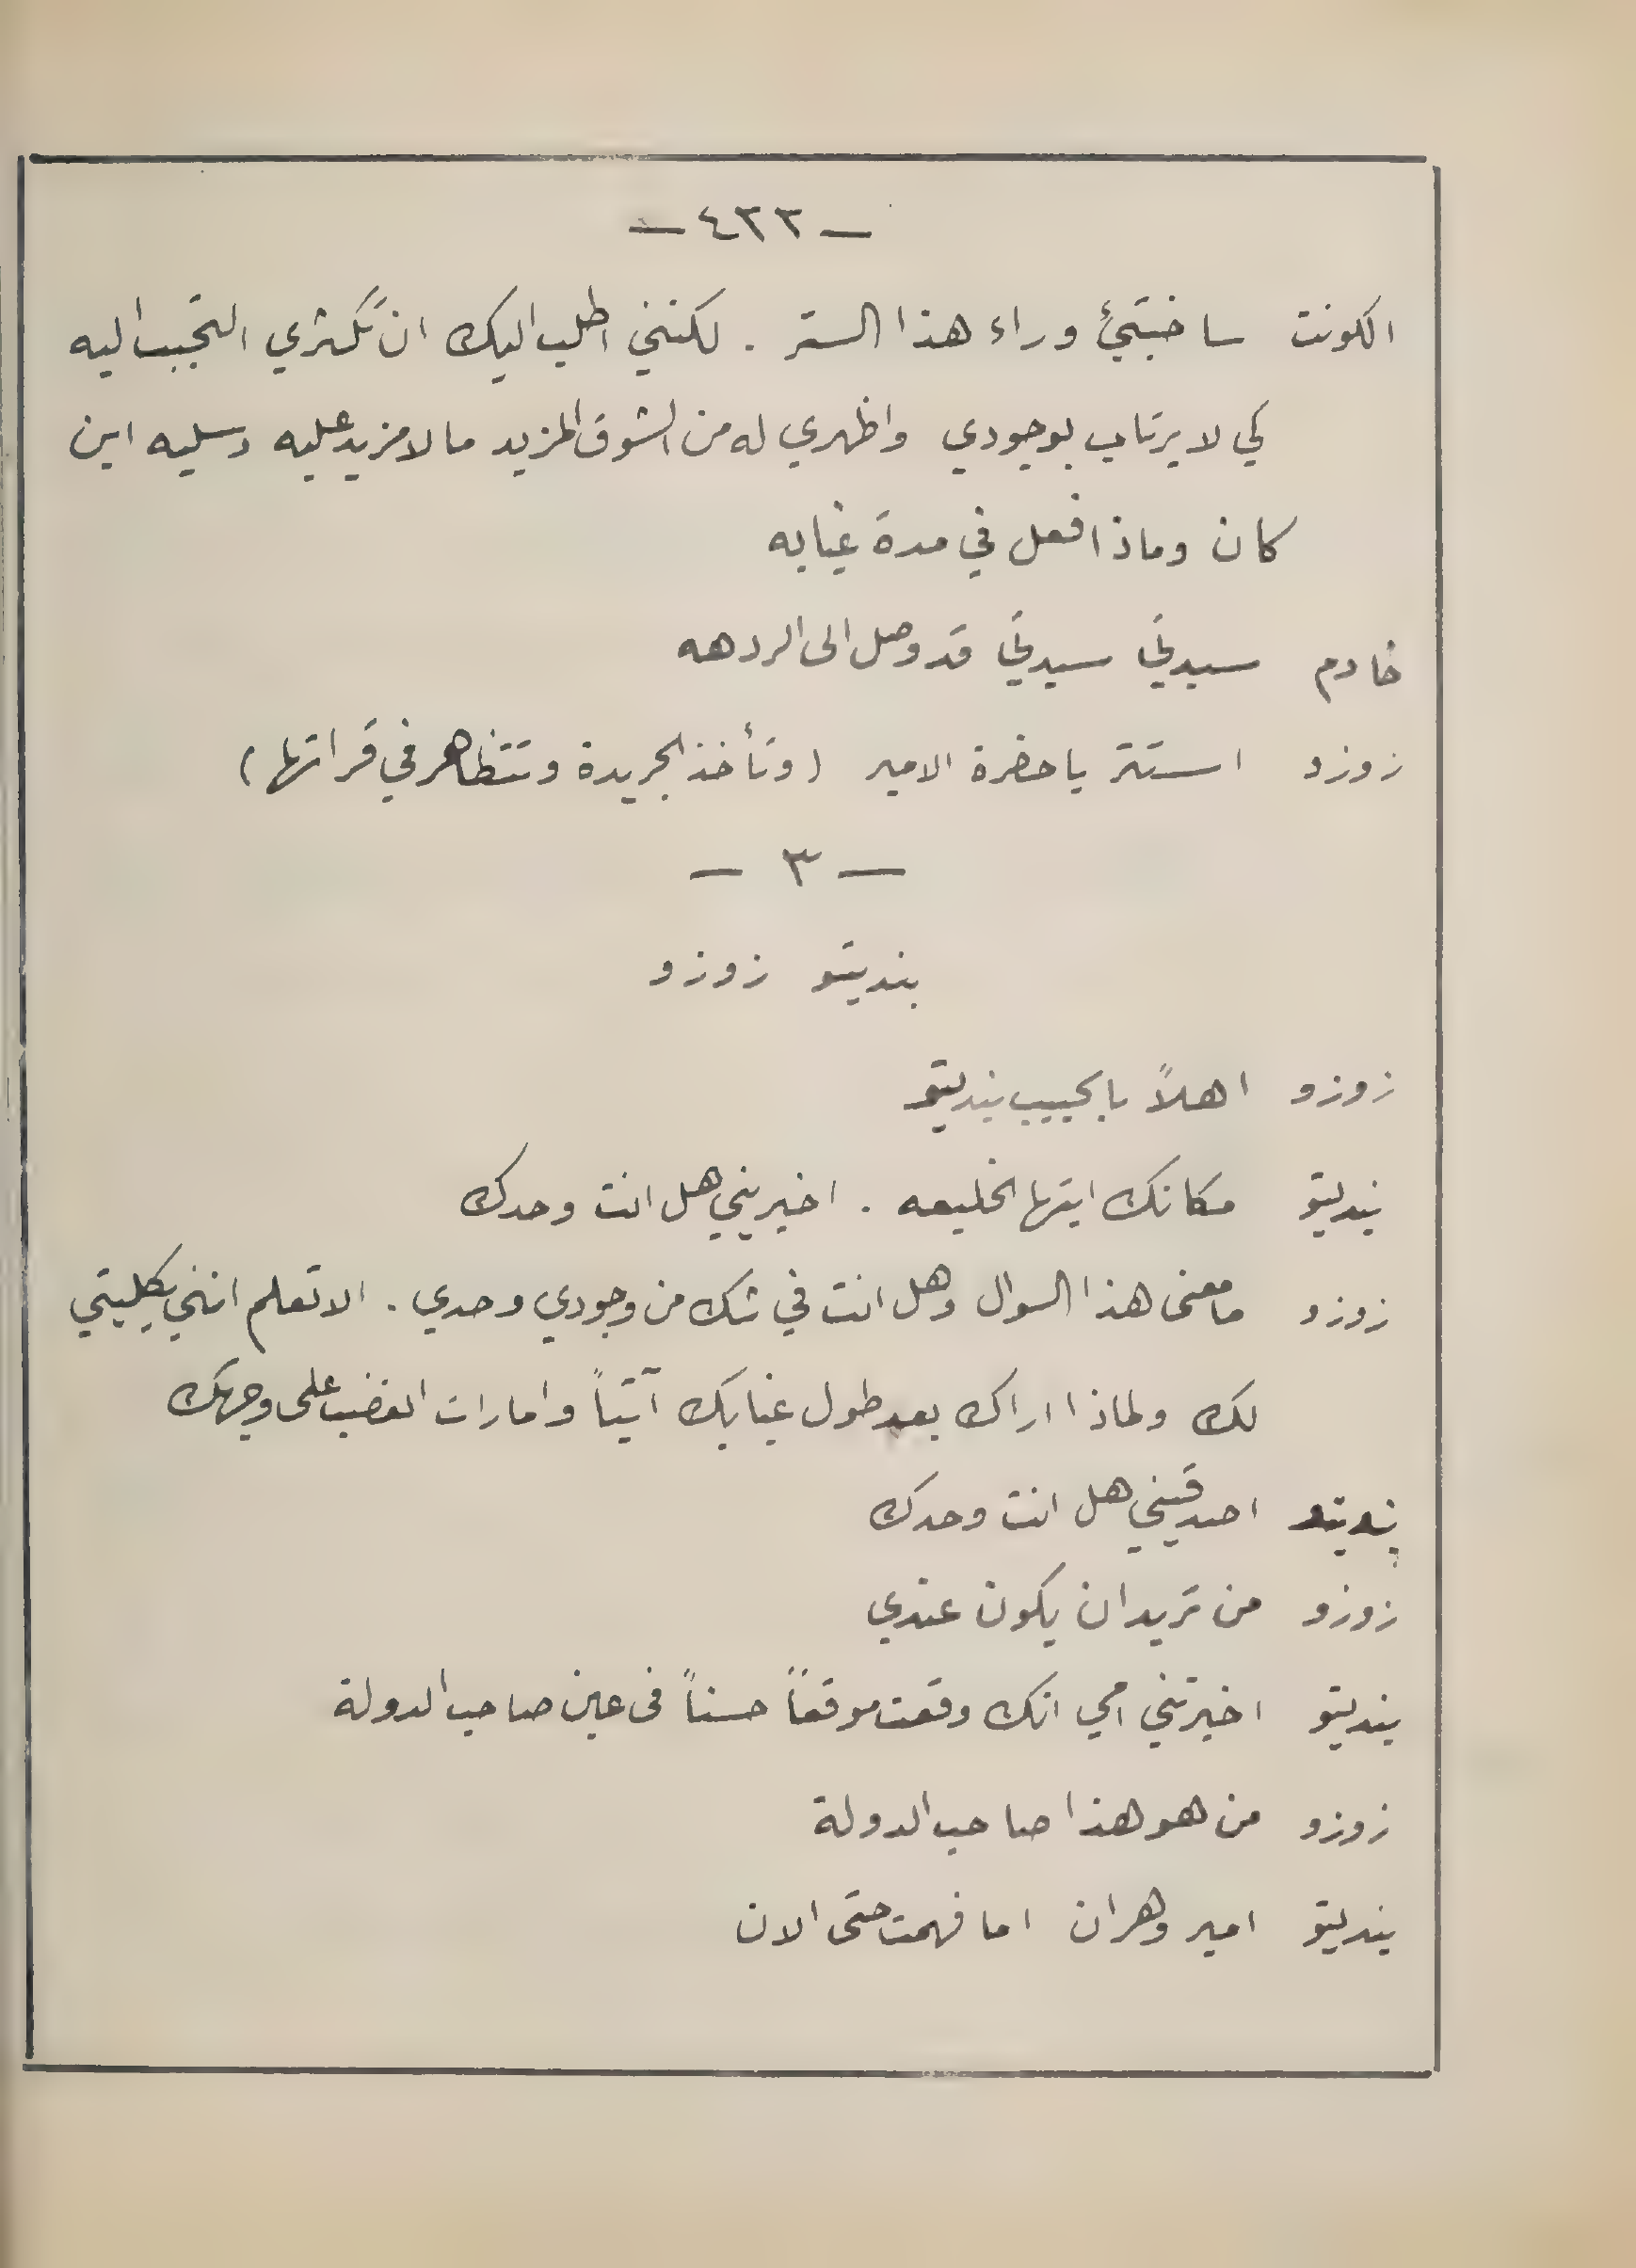 — ٤٣٣ —
الكونت ساختبئ وراء هذا الستر . لكنني اطلب اليك ان تكثري التحبب اليه
كي لا يرتاب بوجودي واظهري له من الشوق المزيد ما لا مزيد عليه وسليه اين
كان وماذا فعل في مدة غيابه
خادم سيدتي سيدتي قد وصل الى الردهه
زوزو استتر يا حضرة الامير ( وتأخذ الجريدة وتتظاهر في قراتها )
— ٣ —
بنديتو زوزو
زوزو اهلاً بالحبيب بنديتو
بنديتو مكانك ايتها الخليعه . اخبريني هل انت وحدك
زوزو ما معنى هذا السوال وهل انت في شك من وجودي وحدي . الا تعلم انني بكليتي
لك ولماذا اراك بعد طول غيابك آتياً وامارات الغضب على وجهك
بنديتو اصدقيني هل انت وحدك
زوزو من تريد ان يكون عندي
بنديتو اخبرتني امي انك وقعت موقعاً حسناً في عين صاحب الدولة
زوزو من هو هذا صاحب الدولة
بنديتو امير وهران اما فهمت حتى الان